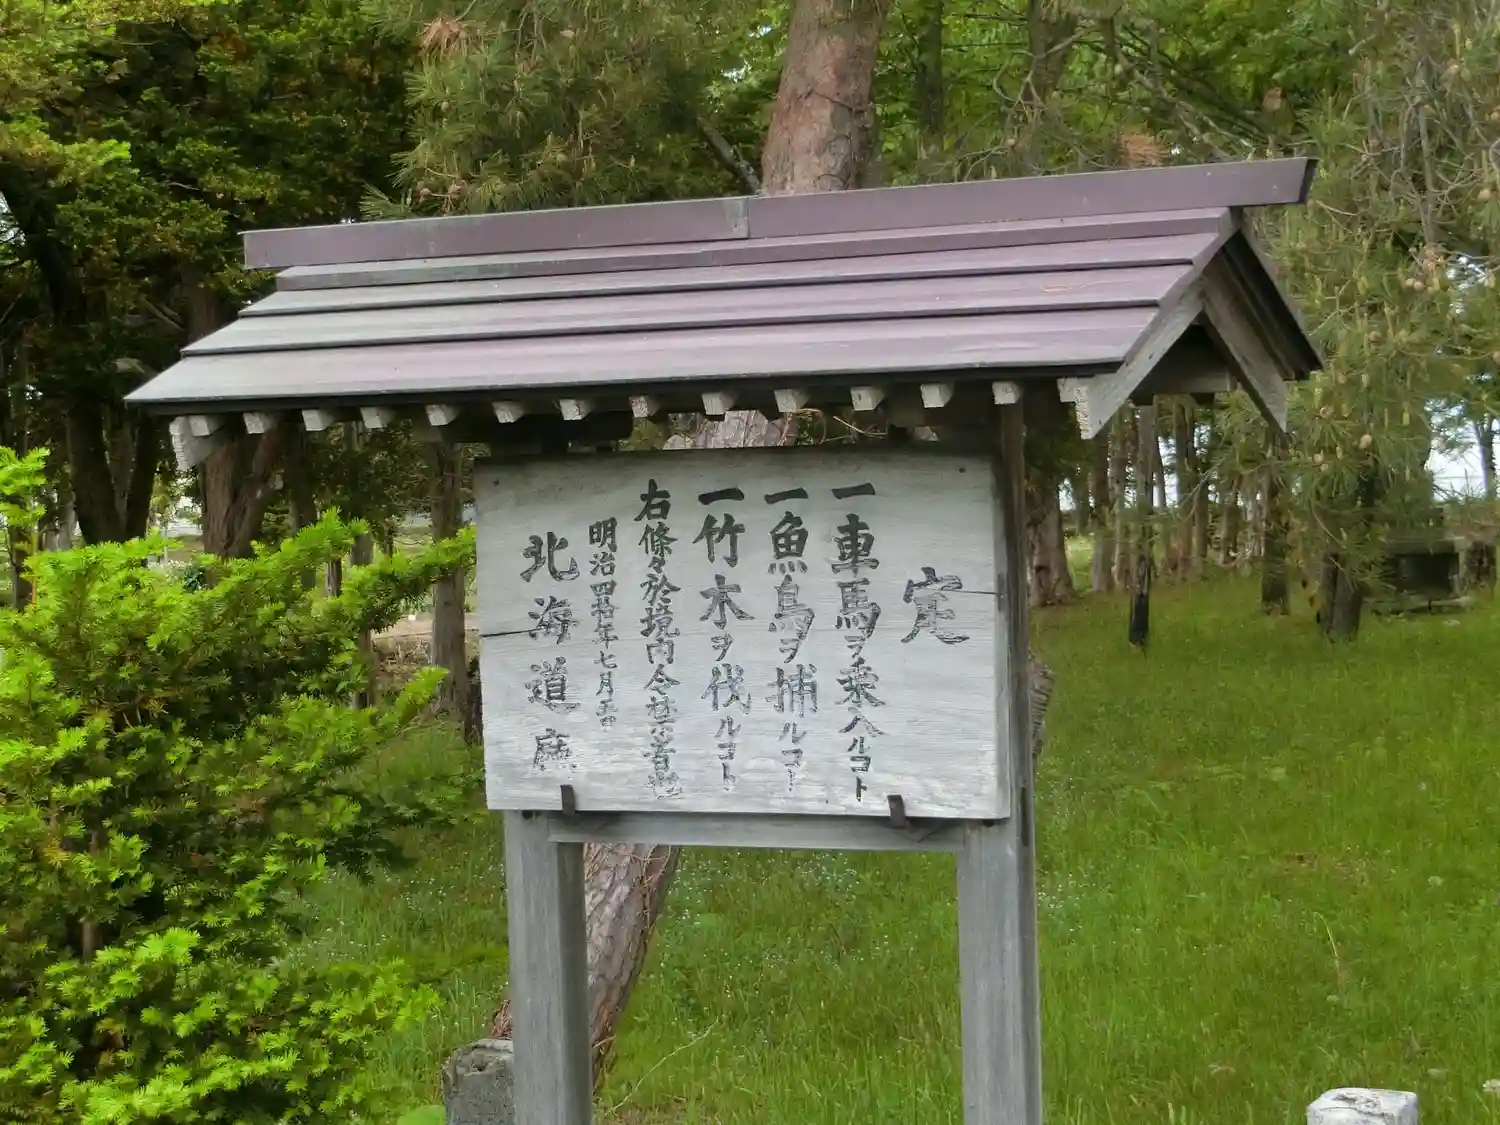 定
一車馬ヲ乗入ルコト
一魚鳥ヲ捕ルコト
一竹木ヲ伐ルコト
右條々於境内令禁者也
明治四拾年七月五日
北海道廰